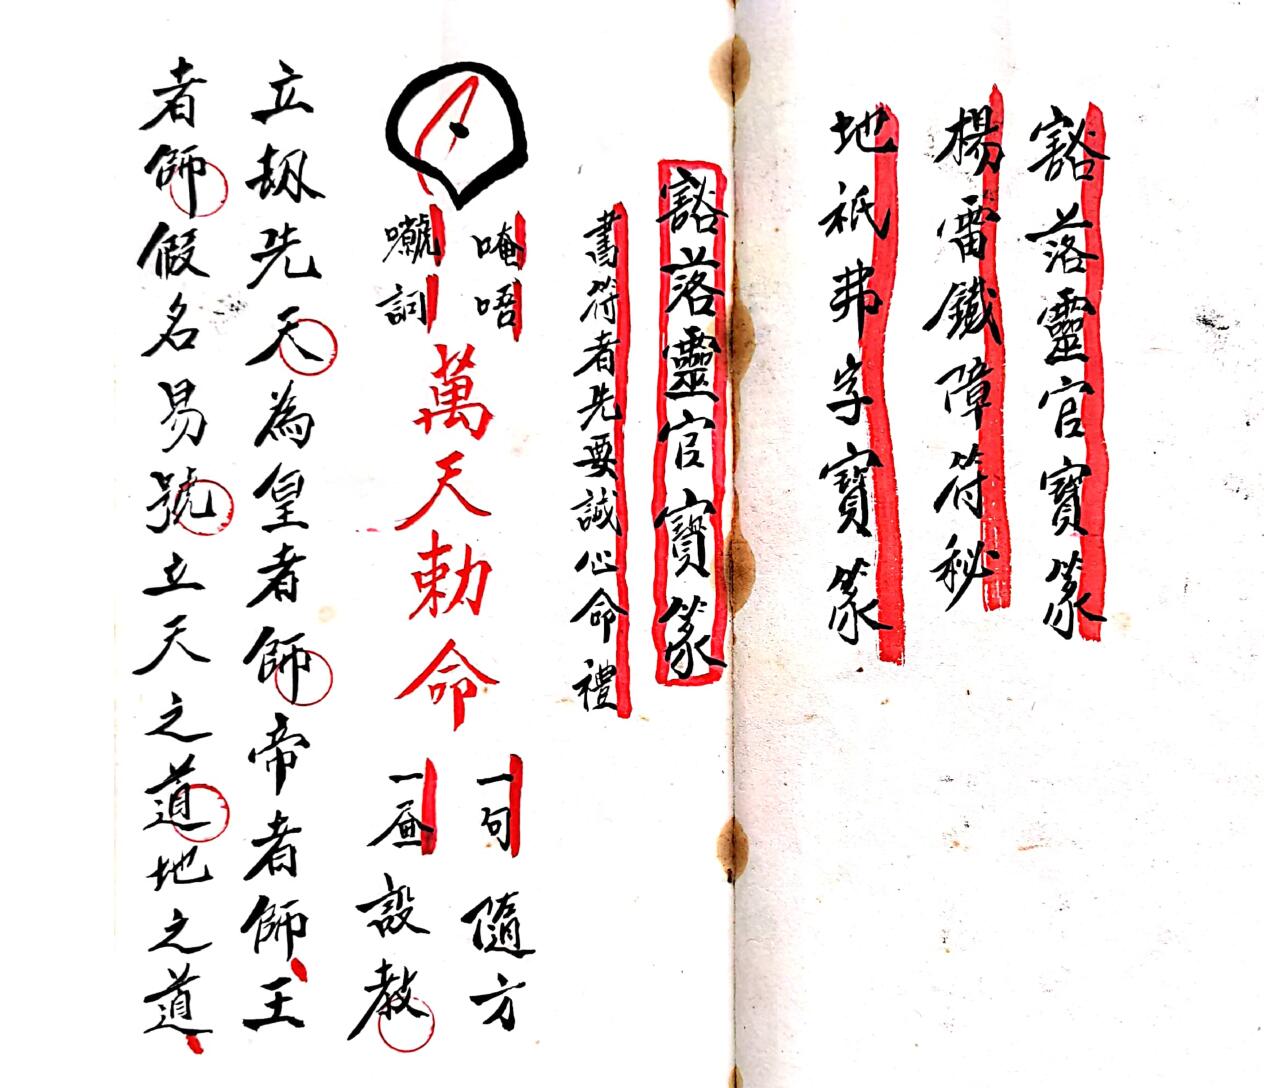 豁落靈官寶篆
楊雷鐵障符秘
地祇弗字寶篆
豁落靈官寶篆
書符者先要誠心命禮
唵唔
詞
萬天勅命
一句隨方
一設教
立刼先天為皇者師帝者師王
者師假名易號立天之道地之道